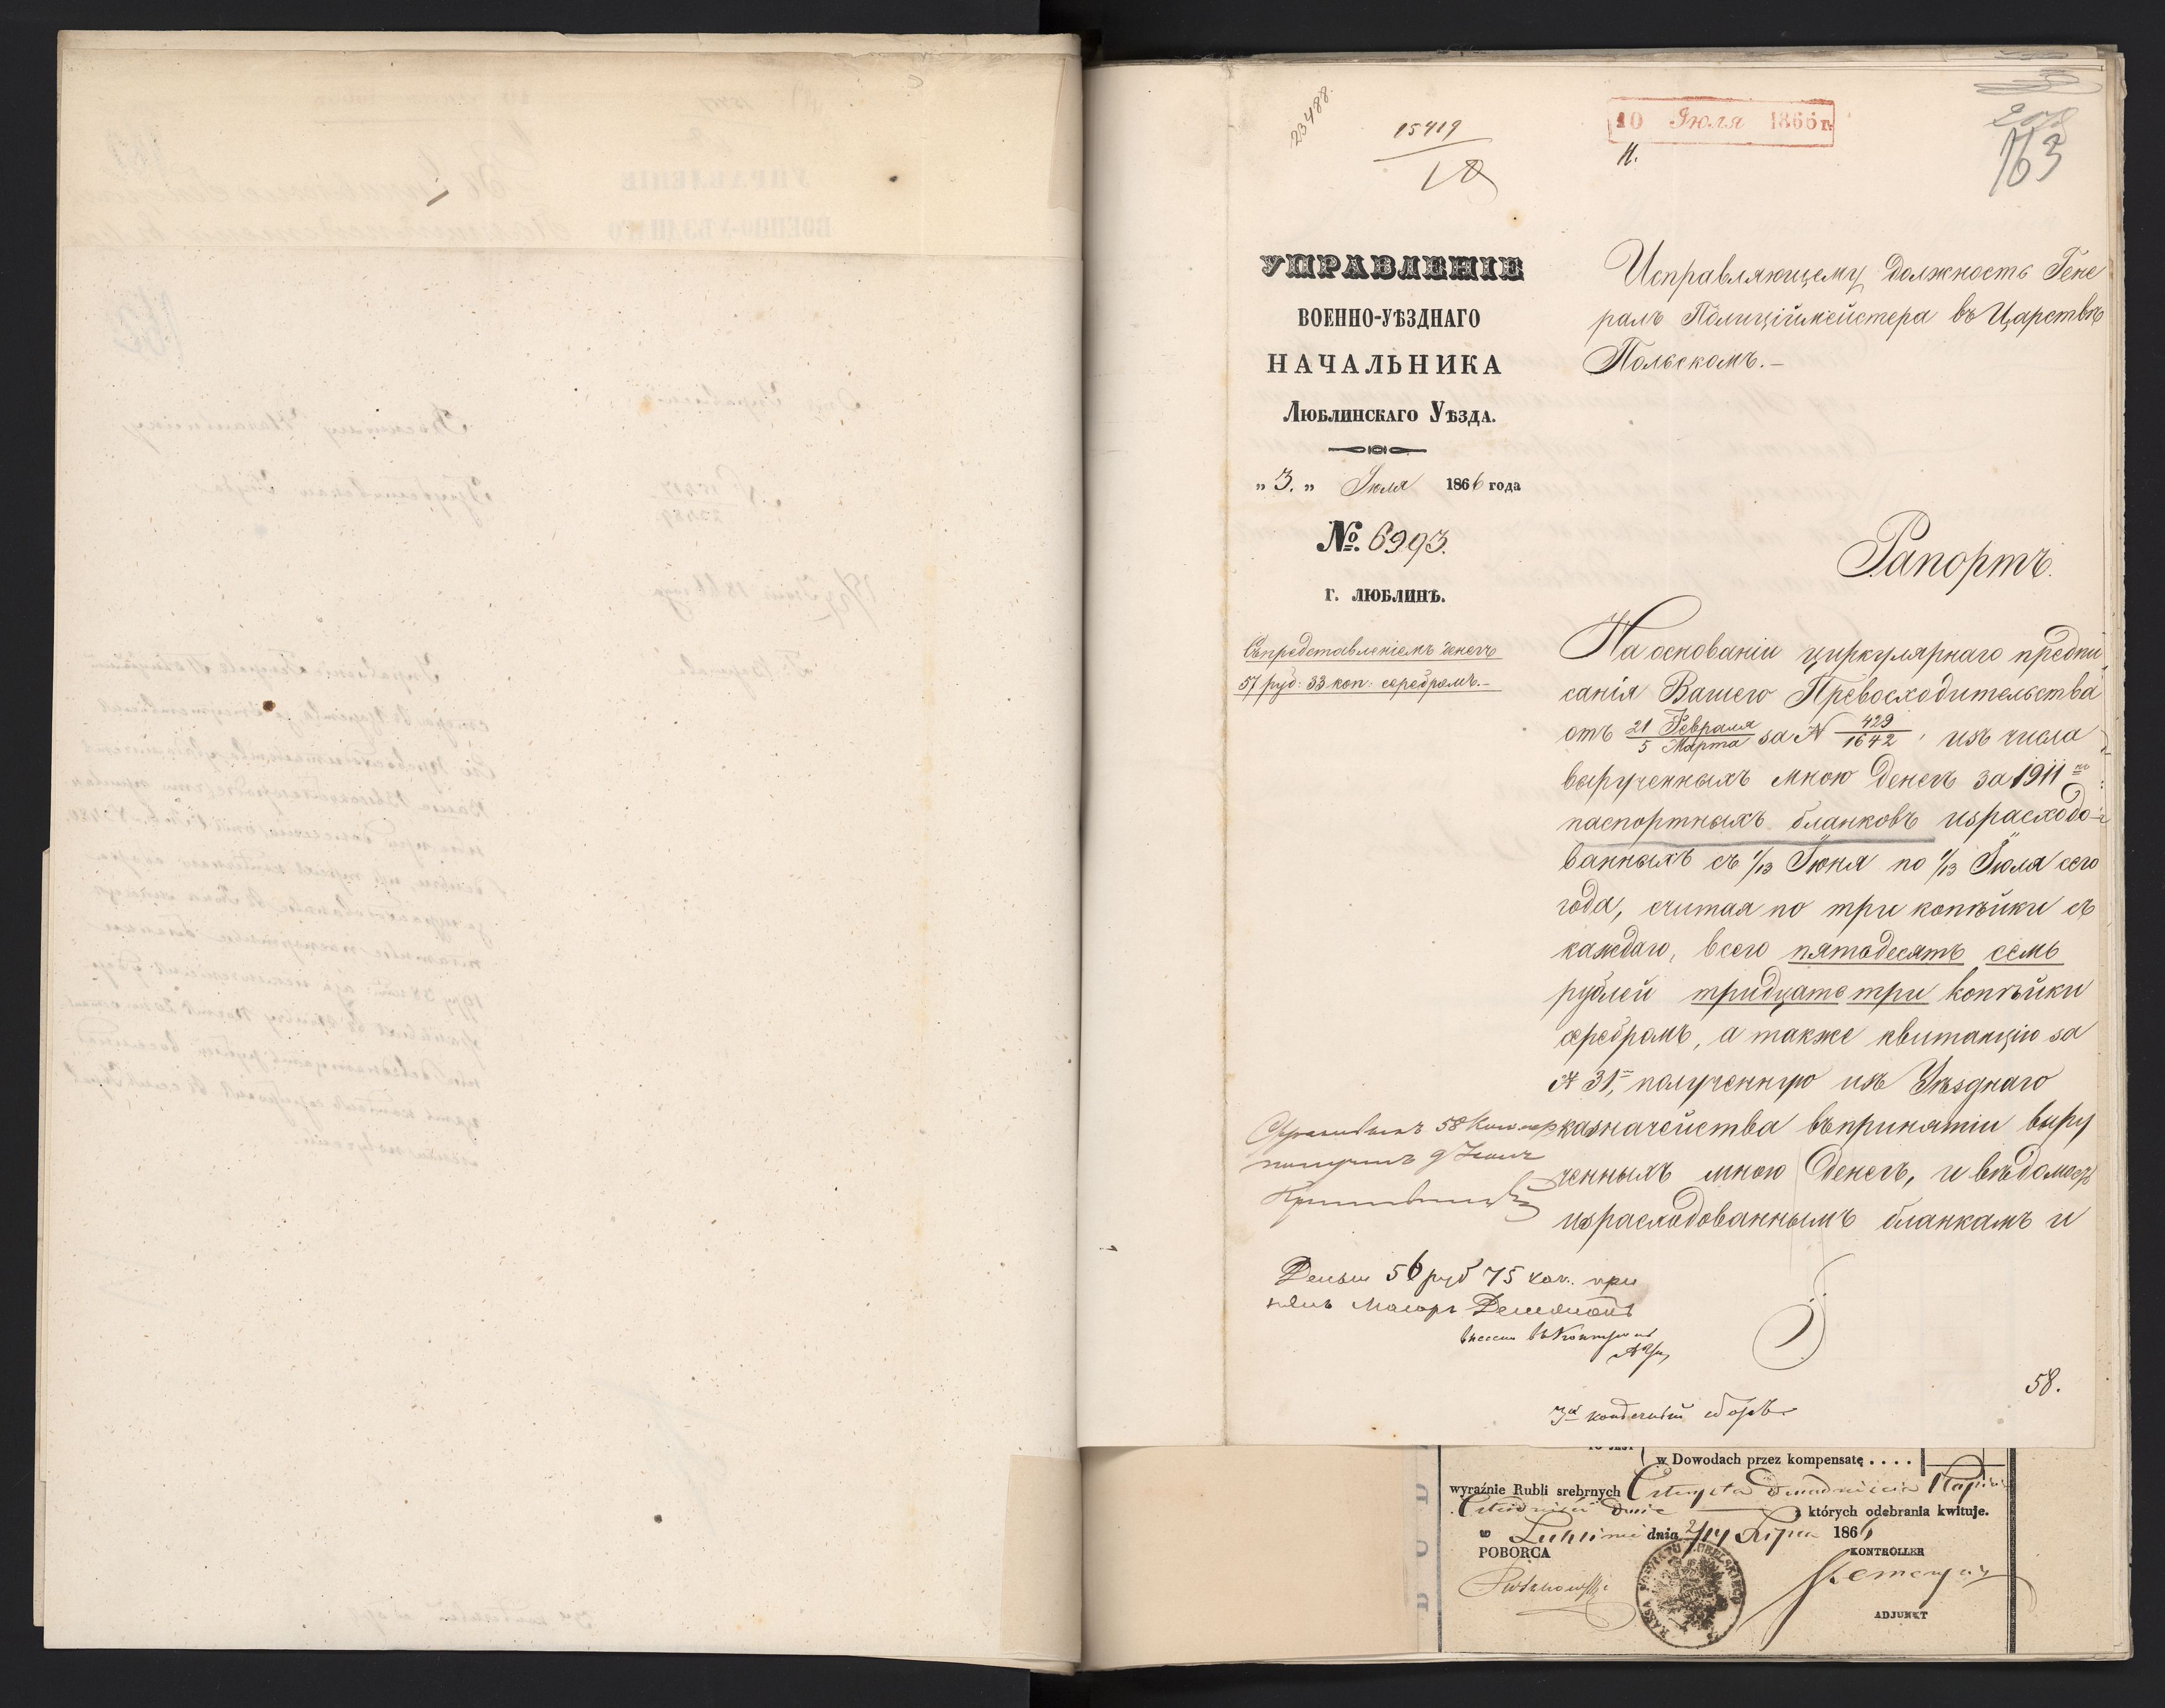 23488.
15419
18
10 Июля 1866 г.
163
УПРАВЛЕНІЕ
ВОЕННО-УѢЗДНАГО
НАЧАЛЬНИКА
Люблинскаго Уѣзда.
„ 3. „ Июля 1866 года
№. 6993.
г. ЛЮБЛИНЪ.
Съ представленіемъ денегъ
57 руб: 33 коп: серебромъ.-
Исправляющему должность Гене
ралъ Полиціймейстера въ Царствѣ
Польскомъ.-
Рапортъ.
На основаніи циркулярнаго предпи
санія Вашего Превосходительства
отъ 21 Февраля / 5 Марта за № 429/1642, изъ числа
вырученныхъ мною денегъ за 1911
паспортныхъ бланковъ израсходо-
ванныхъ съ 1/13 Іюня по 1/13 Іюля сего
года, считая по три копѣйки съ
каждаго, всего пятьдесятъ семь
рублей тридцать три копѣйки
серебромъ, а также квитанцію за
№ 31, полученную изъ Уѣзднаго
казначейства въ принятіи выру
ченныхъ мною денегъ, и вѣдомость
израсходованнымъ бланкамъ и
58 Копѣекъ
получилъ 9 Іюля
Деньги 56 руб 75 коп. при
нялъ Маіоръ
58.
w Dowodach przez kompensatę . . . .
wyraźnie Rubli srebrnych Czterysta dwadzieścia Kopiejek
Czterdzieści dwie których odebrania kwituje.
w Lublinie dnia 2/14 Lipca 1866
POBORCA KONTROLLER
ADJUNKT